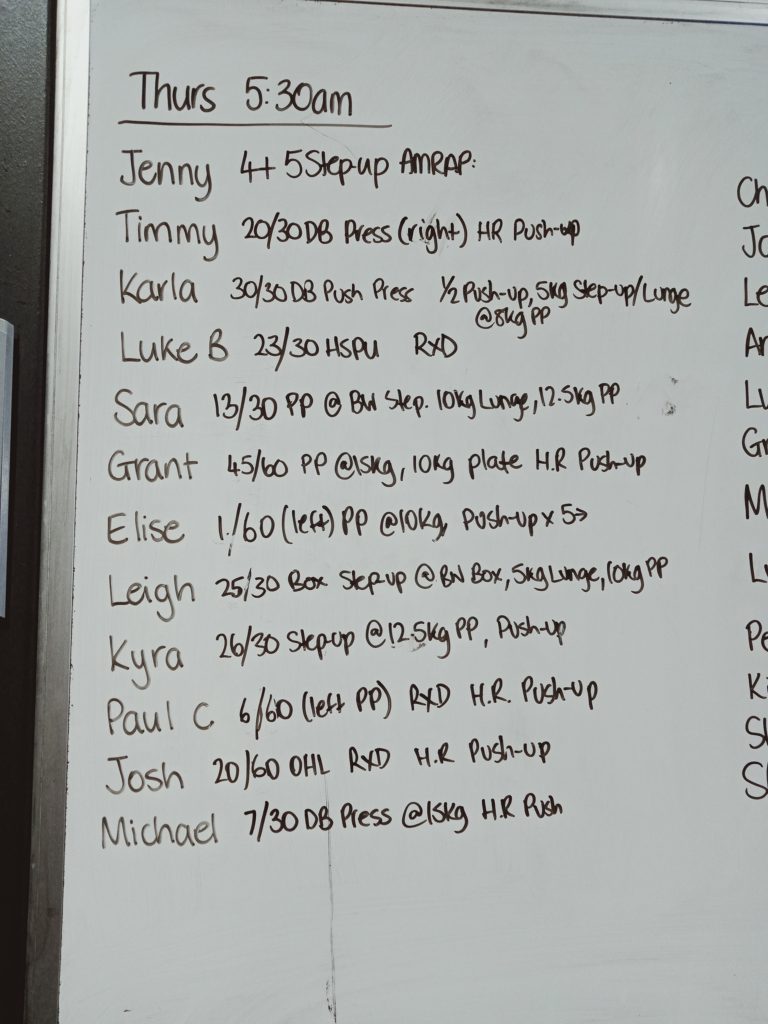 Thurs 5:30am
Jenny 4+ 5 Step-up AMRAP:
Timmy 20/30 DB Press (right) HR Push-up
Karla 30/30 DB Push Press 1/2 Push-up, 5kg Step-up/Lunge
@8kg PP
Luke B 23/30 HSPU RXD
Sara 13/30 PP @ BW Step. 10kg Lunge, 12.5kg PP
Grant 45/60 PP @15kg, 10kg plate H.R Push-up
Elise 1/60 (left) PP @10kg, Push-up x 5→
Leigh 25/30 Box Step-up @ BW Box, 5kg Lunge, 10kg PP
Kyra 26/30 Step-up @12.5kg PP, Push-up
Paul C 6/60 (left PP) RXD H.R. Push-up
Josh 20/60 OHL RXD H.R Push-up
Michael 7/30 DB Press @15kg H.R Push
Ch
Jo
Le
Ar
Lu
Gr
M
Lu
Pe
Ki